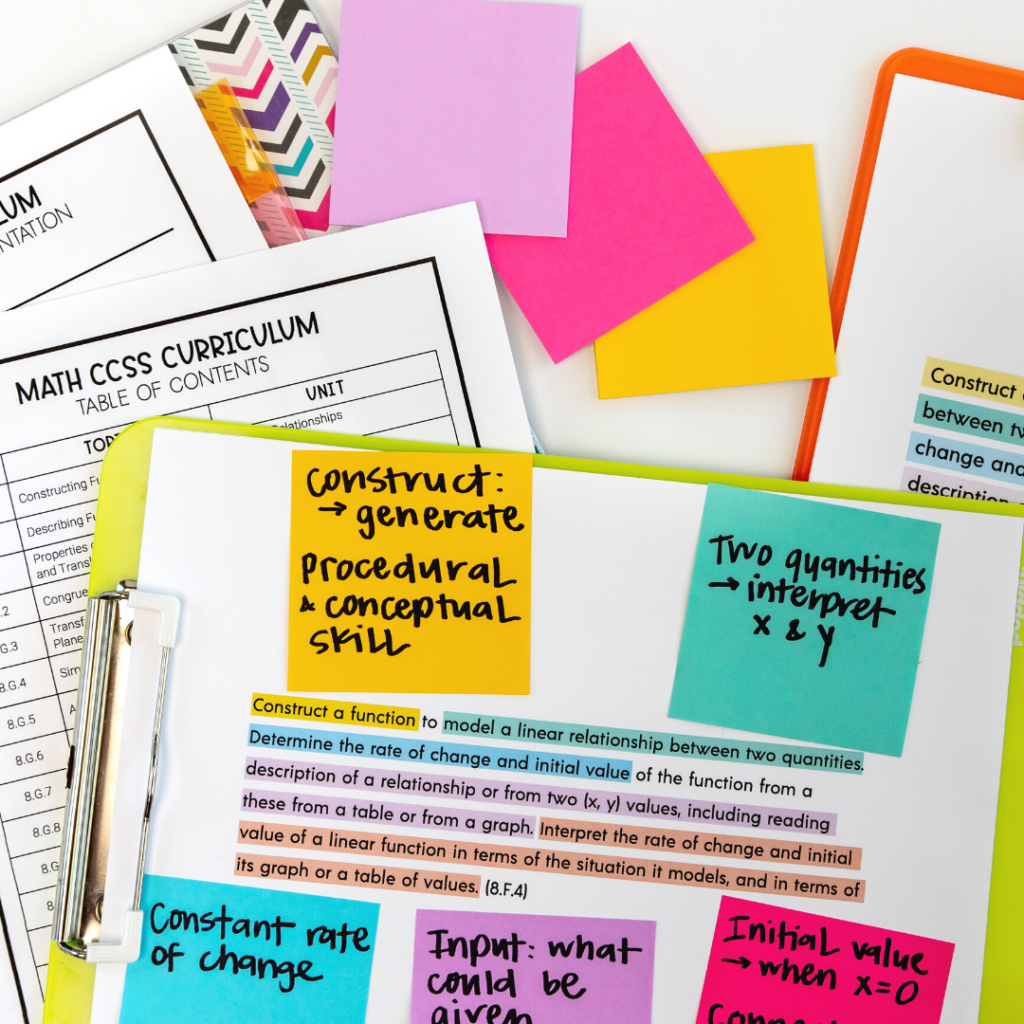 MATH CCSS CURRICULUM
TABLE OF CONTENTS
UNIT
Constructing
Describing
Properties
and
8.G.4
8.G.5
8.G.6
8.G.7
8.G.8
Construct
between
change and
description
construct:
→ generate
procedural
& conceptual
skill
Two quantities
→ interpret
x & y
Construct a function to model a linear relationship between two quantities.
Determine the rate of change and initial value of the function from a
description of a relationship or from two (x, y) values, including reading
these from a table or from a graph. Interpret the rate of change and initial
value of a linear function in terms of the situation it models, and in terms of
its graph or a table of values. (8.F.4)
Constant rate
of change
Input: what
could be
given
Initial value
→ when x=0